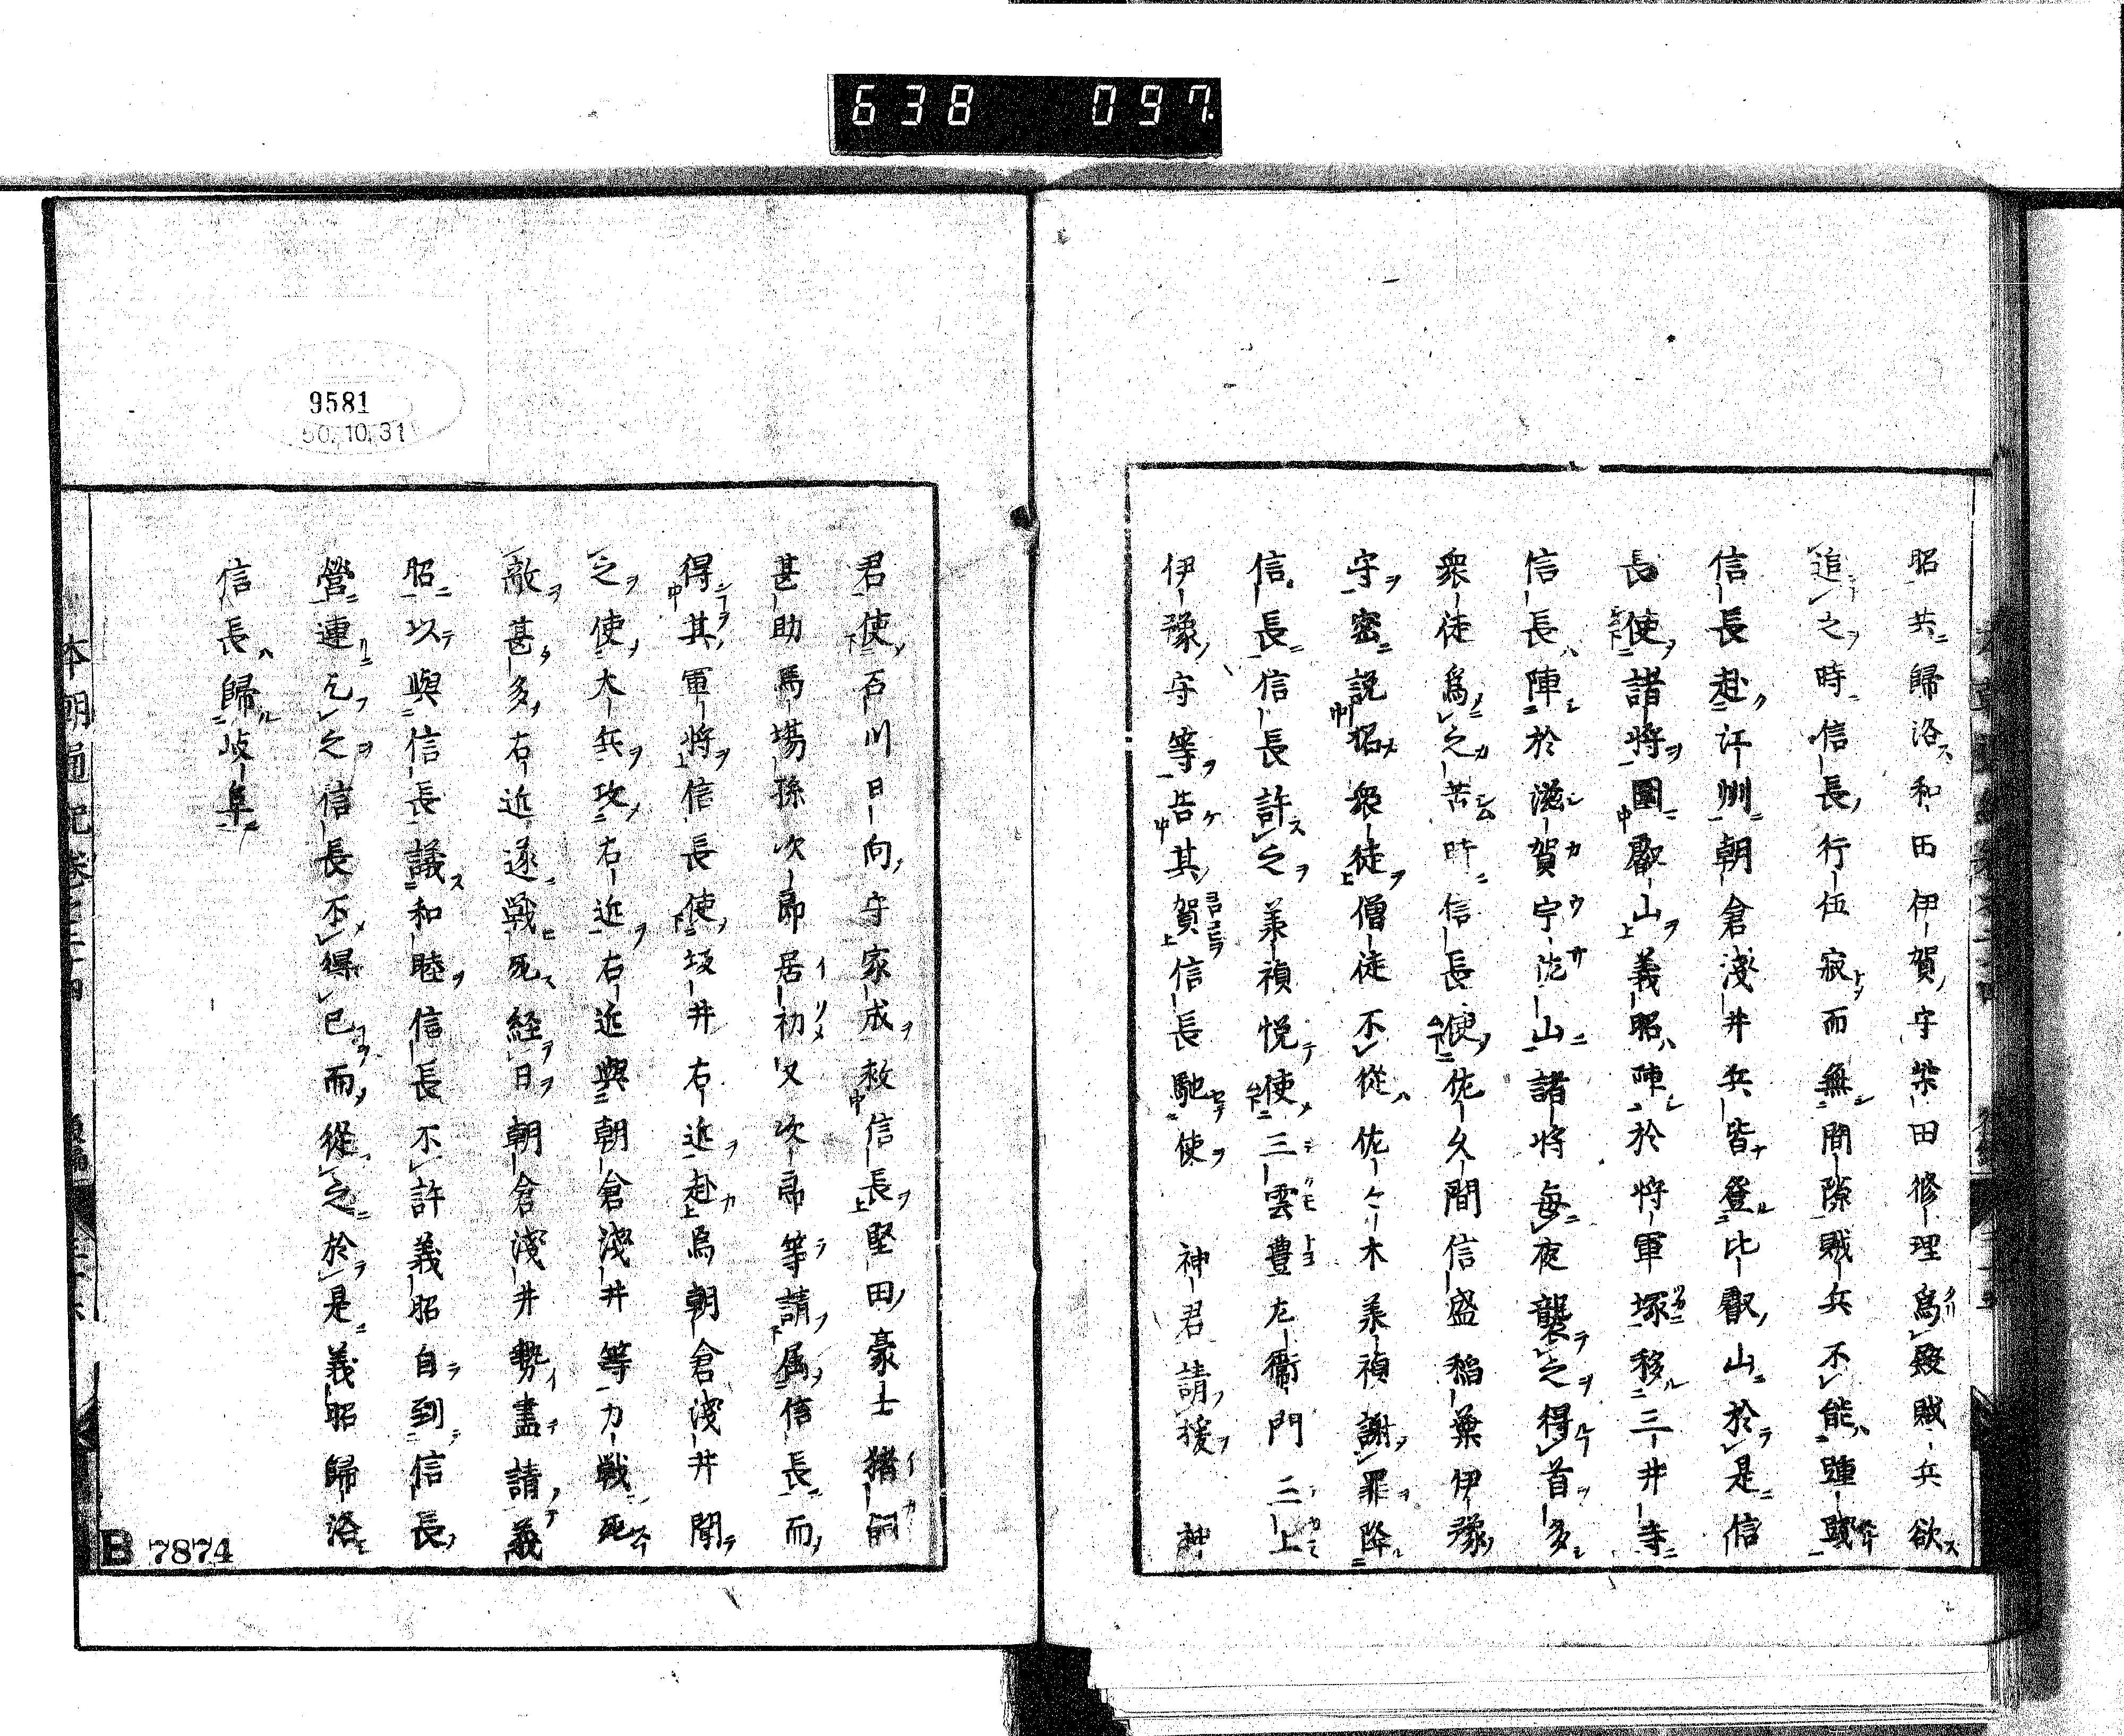 638 097
昭共歸洛和田伊賀守柴田修理爲殿賊兵欲
追之時信長行伍寂而無間隙賊兵不能
信長赴江州朝倉淺井兵皆登比叡山於是信
長使諸將圍叡山義昭陣於將軍塚移三井寺
信長陣於滋賀宇佐山諸將每夜襲之得首多
衆徒爲之苦時信長使佐久間信盛稻葉伊豫
守密説招衆徒僧徒不從佐々木義禎謝罪降
信長信長許之義禎悦使三雲豊左衞門三上
伊豫守等告其賀信長馳使 神君請援 神
君使石川日向守家成救信長堅田豪士猪飼
甚助馬場孫次郎居初又次郎等請属信長而
得其軍將信長使坂井右近赴焉朝倉淺井聞
之使大兵攻右近右近與朝倉淺井等力戰死
敵甚多右近遂戰死経日朝倉淺井勢盡請義
昭以與信長議和睦信長不許義昭自到信長
營連乞之信長不得已而從之於是義昭歸洛
信長歸岐阜
本朝通紀
9581
50.10.31
B 7874